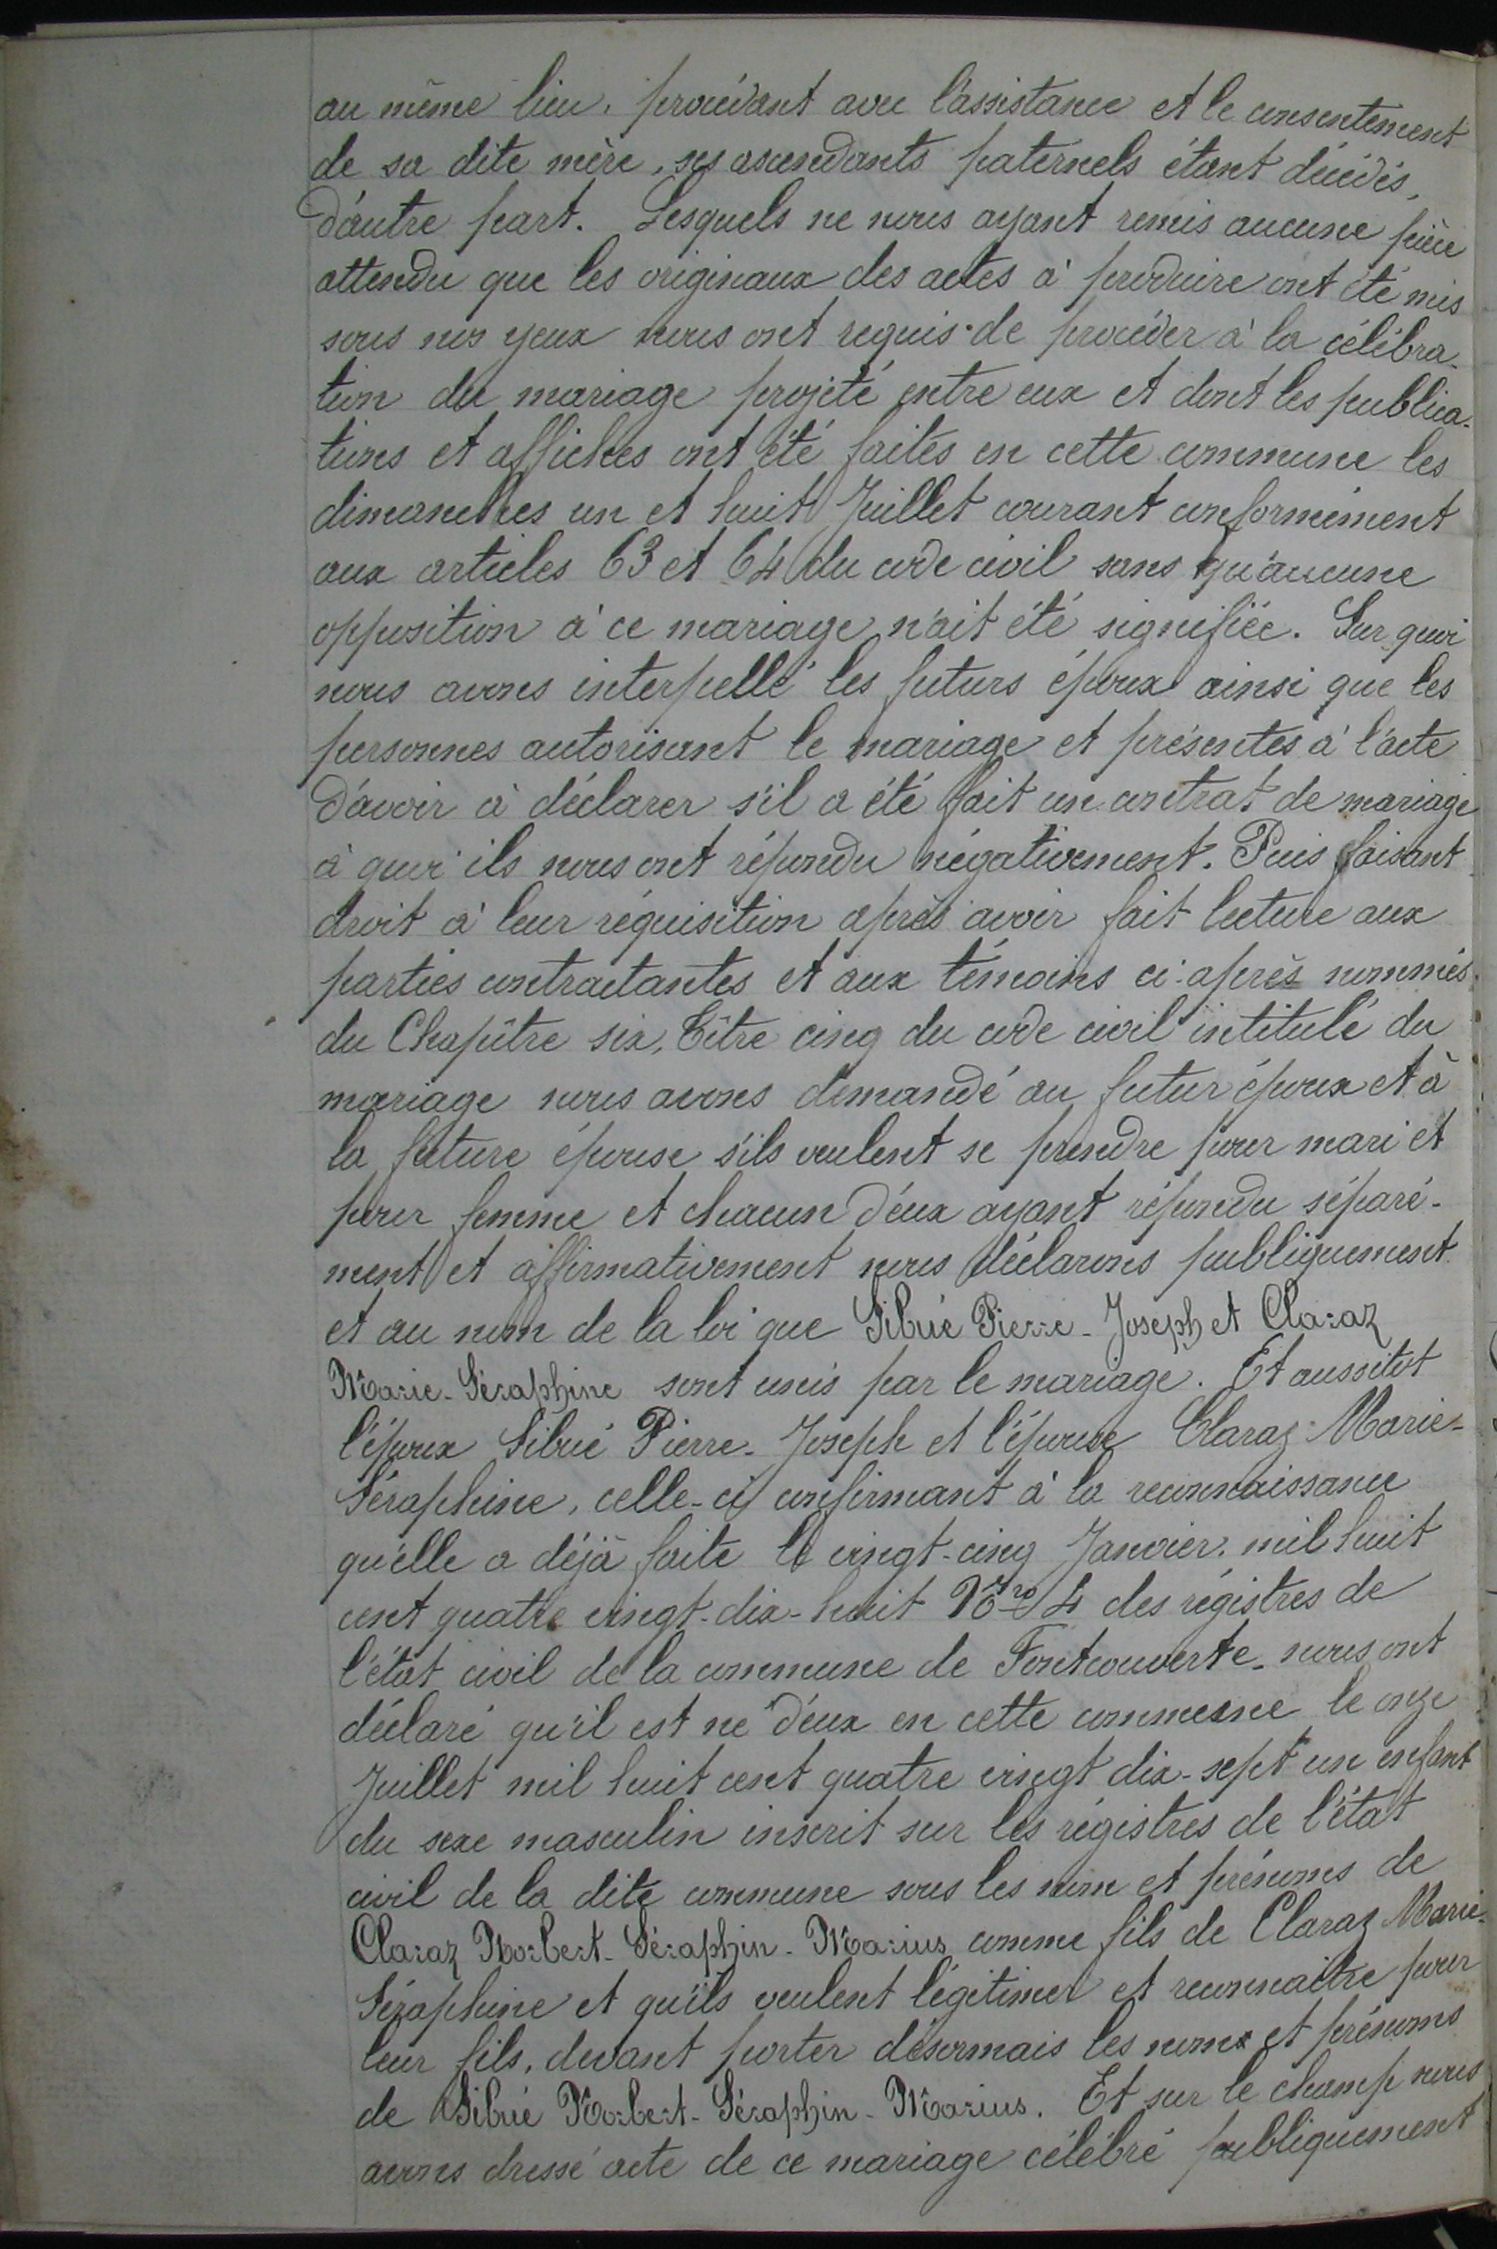 au même lieu, procédant avec l'assistance et le consentement
de sa dite mère, ses ascendants paternels étant décédés,
d'autre part. Lesquels ne nous ayant remis aucune pièce
attendu que les originaux des actes à produire ont été mis
sous nos yeux nous ont requis de procéder à la célébra-
tion du mariage projeté entre eux et dont les publica-
tions et affiches ont été faites en cette commune les
dimanches un et huit Juillet courant conformément
aux articles 63 et 64 du code civil sans qu'aucune
opposition à ce mariage n'ait été signifiée. Sur quoi
nous avons interpellé les futurs époux ainsi que les
personnes autorisant le mariage et présentes à l'acte
d'avoir à déclarer s'il a été fait un contrat de mariage
à quoi ils nous ont répondu négativement. Puis faisant
droit à leur réquisition après avoir fait lecture aux
parties contractantes et aux témoins ci-après nommés
du Chapître six, Tître cinq du code civil intitulé du
mariage nous avons demandé au futur époux et à
la future épouse s'ils veulent se prendre pour mari et
pour femme et chacun d'eux ayant répondu séparé-
ment et affirmativement nous déclarons publiquement
et au nom de la loi que Sibué Pierre-Joseph et Claraz
Marie-Séraphine sont unis par le mariage. Et aussitot
l'époux Sibué Pierre-Joseph et l'épouse Claraz Marie-
Séraphine, celle-ci confirmant à la reconnaissance
qu'elle a déjà faite le vingt-cinq Janvier mil huit
cent quatre vingt-dix-huit Nro 4 des régistres de
l'état civil de la commune de Fontcouverte nous ont
déclaré qu'il est né d'eux en cette commune le onze
Juillet mil huit cent quatre vingt dix-sept un enfant
du sexe masculin inscrit sur les régistres de l'état
civil de la dite commune sous les nom et prénoms de
Claraz Norbert-Séraphin-Marius comme fils de Claraz Marie-
Séraphine et qu'ils veulent légitimer et reconnaître pour
leur fils, devant porter désormais les noms et prénoms
de Sibué Norbert-Séraphin-Marius. Et sur le champ nous
avons dressé acte de ce mariage célébré publiquement